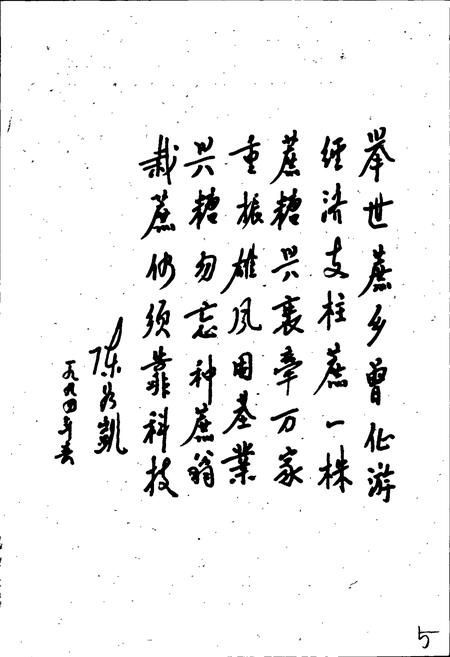 举世蔗乡曾仳游
经济支柱蔗一株
蔗糖兴衰牵万家
重振雄风固基业
兴糖勿忘种蔗翁
栽蔗仍须靠科技
陈为凯
一九九四年春
5